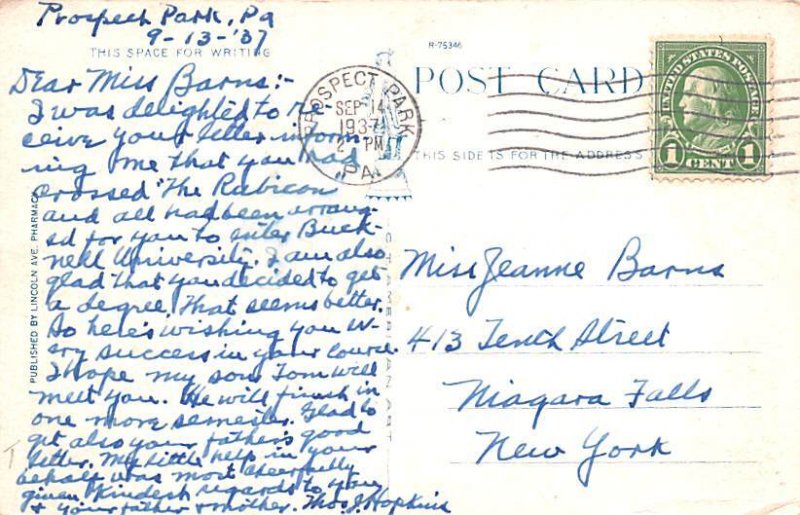 Prospect Park, Pa
9-13-'37
THIS SPACE FOR WRITING
Dear Miss Barns:-
I was delighted to re-
ceive your letter inform-
ing me that you had
crossed "The Rubicon
and all had been arrang-
ed for you to enter Buck-
nell University. I am also
glad that you decided to get
a degree, That seems better.
So here's wishing you ev-
ery success in your course
I hope my son Tom will
meet you. He will finish in
one more semester. Glad to
get also your father's good
letter. My little help in your
behalf was most cheerfully
given. Kindest regards to you
& your father & mother. Thos. J. Hopkins
PUBLISHED BY LINCOLN AVE. PHARMACY
R-75346
POST CARD
THIS SIDE IS FOR THE ADDRESS
PROSPECT PARK
SEP 14
1937
2 PM
PA.
UNITED STATES POSTAGE
1 CENT 1
Miss Jeanne Barns
413 Tenth Street
Niagara Falls
New York